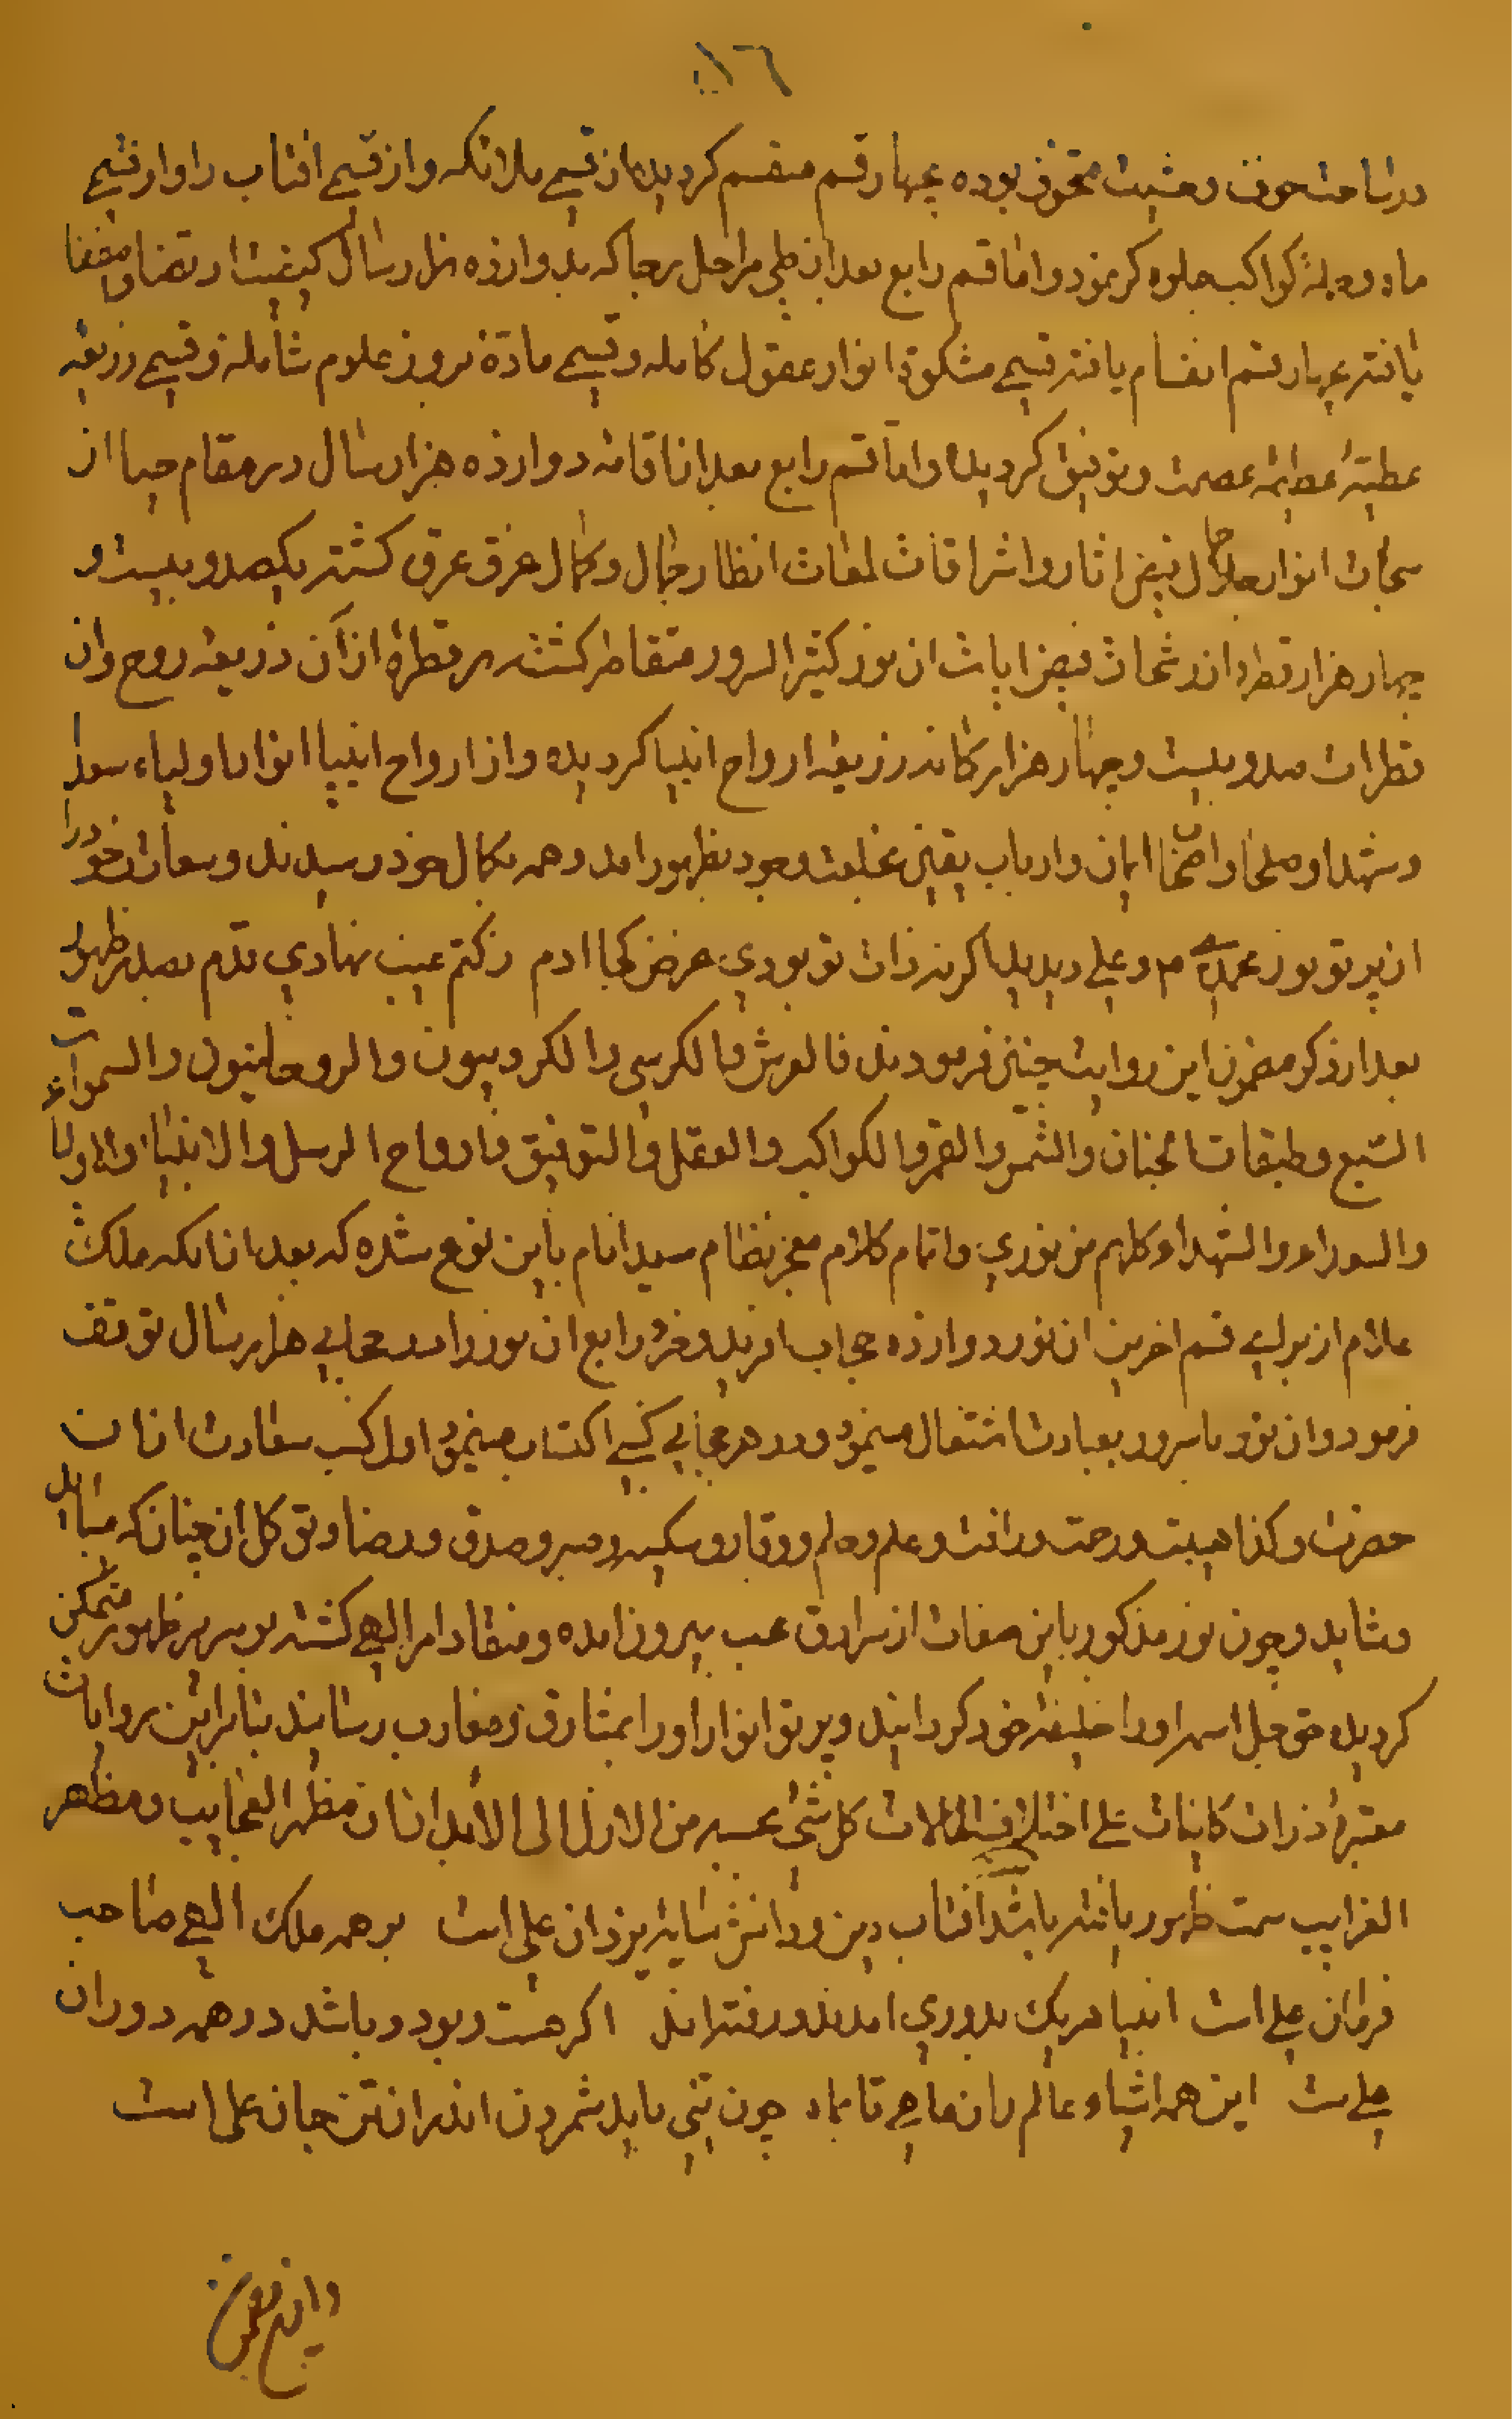 ١٦
در ساحت خوف و خشیت متخوف بوده بچهار قسم منقسم کردیده از قسمی ملائکه و از قسمی افتاب را و از قسمی
ماه و جمله کواکب جلوه کر نمود و اما قسم رابع بعد از طی مراحل رجا که بدوازده هزار سال کیفیت ارتضا و اقتفا
یافته بچهار قسم انقسام یافته قسمی مشکوة انوار عقول کامله و قسمی مادۀ بروز علوم شامله و قسمی ذریعه
عطیۀ عظیمه عصمت و توفیق کردیده و اما قسم رابع بعد از اقامه دوازده هزار سال در مقام حیا از
سبحات انوار جلال فیض اثار و اشراقات لمعات انظار جمال و کمال غرق عرق کشته یکصد و بیست و
چهار هزار قطره از رشحات فیض ایات ان نور کثیر السرور متقاطر کشته هر قطرۀ از آن ذریعه روح وان
قطرات صد و بیست و چهار هزار کانه ذریعه ارواح انبیا کردیده و از ارواح انبیا انوار اولیاء سعدا
و شهدا و صلحا و اصحاب ایمان و ارباب یقین بخلعت وجود بظهور امد و همه بکمال خود رسیدند و سعادات خود را
از پرتو نور محمد ص م و علی دیدند کر نه ذات تو بودی غرض کجا ادم ز کتم غیب نهادی قدم بصدر ظهور
بعد از ذکر مضمون این روایت چنین فرمودند فالعرش والکرسی والکروبیون والروحانیون والسموات
السبع وطبقات الجنان والشمس والقمر والکواکب والعقل والتوفیق وارواح الرسل والانبیاء والاولیا
والسعداء والشهدا وکلهم من نوری و اتمام کلام معجز نظام سید انام باین نوع شده که بعد از انکه ملک
علام از برای قسم اخرین ان نور دوازده حجاب افرید و جزو رابع ان نور را در حجابی هزار سال توقف
فرمود و ان نور با سرور بعبادت اشتغال مینمود و در هر حجابی کسبی اکتساب مینمود اول کسب سعادت از ان
حضرت و کذا هیبت و رحمت و رافت و علم و حلم و وقار و سکینه و صبر و صدق و رضا و توکل ان چنانکه میباید
و شاید و چون نور مذکور باین صفات از سرادق غیب بیرون امده و منقاد امر الهی کشته بر سریر ظهور متمکن
کردیده حق جل اسمه او را خلیفه خود کردانید و پرتو انوار او را بمشارق و مغارب رسانید بنابراین روایات
معتبره ذرات کاینات علی اختلاف الحالات کل شئ بحسبه من الازل الی الابد از ان مظهر العجایب و مظهر
الغرایب سمت ظهور یافته باشد افتاب دین و دانش سایه یزدان علی است بر همه ملک الهی صاحب
فرمان علی است انبیا هر یک بدوری امدند و رفته‌اند اکر هست و بود و باشد در همه دوران
علی است این همه اشیاء عالم را ز ماهی تا بماه چون تنی باید شمردن اندر ان تن جان علی است